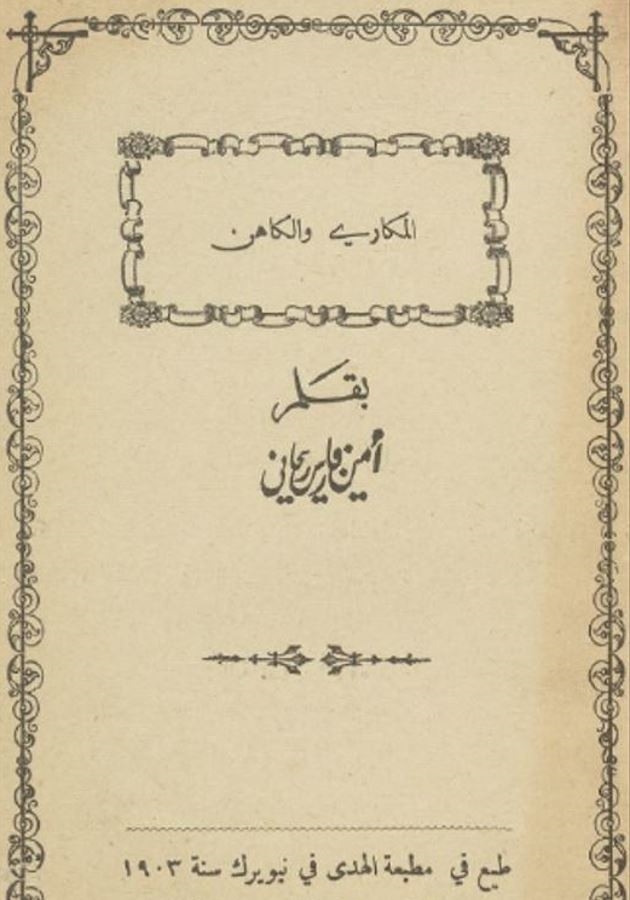 المكاري والكاهن
بقلم
أمين فارس ريحاني
طبع في مطبعة الهدى في نيويرك سنة ١٩٠٣